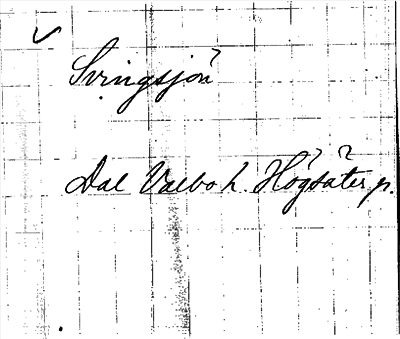 Svingsjön
Dal Valbo h. Högsäter p.